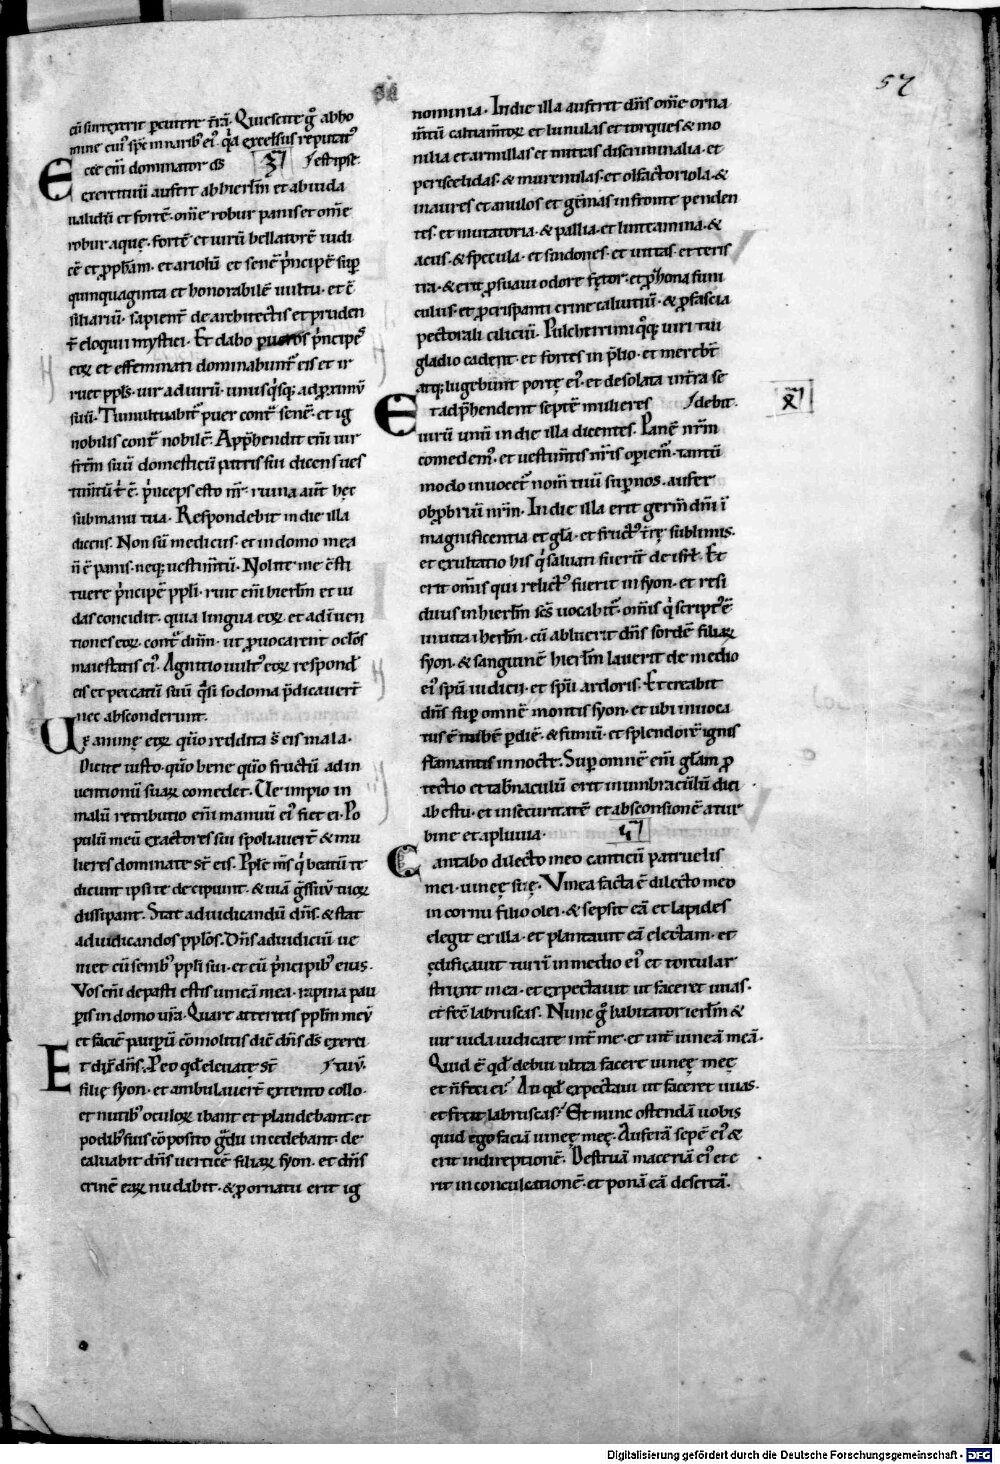 57
cū surrexerit p̄cutere t̄rā. Quiescite gͦ abho
mine cuiˀ sp̄c in naribˀ eiˀ. qͥa excelsus reputatˀ
Ecce em̄ dominator d̄s 3 ⸝est ipse.
exercituū aufert ab hierl̄m et ab iuda
ualidū et fortē. om̄e robur panis et om̄e
robur aquę. fortē et uirū bellatorē iudi
cē et pph̄am. et ariolū et senē p̄ncipē sup
quinquaginta et honorabilē uultu. et c̄
siliariū. sapient̄ de architectis et pruden
t̄ eloquii mystici. Et dabo pueros p̄ncipeˀ
eoꝝ et effeminati dominabunt̄ eis et ir
ruet ppl̄s. uir ad uirū. unusqͥsqꝫ ad ꝓximū
suū. Tumultuabit̄ puer cont̄ senē. et ig
nobilis cont̄ nobilē. App̄hendit em̄ uir
fr̄m suū domesticū patris sui dicens ues
tim̄tū t̄ ē. p̄nceps esto nr̄. ruina aut̄ hęc
sub manu tua. Respondebit in die illa
dicens. Non sū medicus. et in domo mea
n̄ ē panis. neqꝫ uestim̄tū. Nolite me c̄sti
tuere p̄ncipē ppl̄i. ruit em̄ hierl̄m et iu
das concidit. quia lingua eoꝝ et adīuen
tiones eoꝝ. cont̄ dn̄m. ut ꝓuocarent oc̄los
maiestatis eiˀ. Agnitio uultˀ eoꝝ respond̄
eis et peccatū suū qͣsi sodoma p̄dicauer̄
nec absconderunt.
Uę animę eoꝝ qm̄ reddita s̄ eis mala.
Dicite iusto. qm̄ bene qm̄ fructū adin
uentionū suaꝝ comedet. Ue impio in
malū retributio em̄ manuū eiˀ fiet ei. Po
pulū meū exactores sui spoliauer̄ & mu
lieres dominate st̄ eis. Pple m̄s qͥ beatū te
dicunt ipsi te decipiunt. & uiā ḡssuū tuoꝝ
dissipant. Stat ad iudicandū dn̄s. & stat
ad iudicandos ppl̄os. Dn̄s ad iudiciū ue
niet cū senibˀ ppl̄i sui. et cū p̄ncipibˀ eius.
Vos em̄ depasti estis uineā mea. rapina pau
peris in domo ur̄a. Quare atteritis ppl̄m meū
et faciē paupū cōmolitis dicē dn̄s d̄s exerci
Et dix̄ dn̄s. Peo qd̄ eleuate st̄ ⸝tuū.
filię syon. et ambulauer̄ extento collo.
et nutibˀ oculoꝝ ibant et plaudebant. et
pedibˀ suis cōposito gͣdu incedebant. de
caluabit dn̄s uerticē filiaꝝ syon. et dn̄s
crinē eaꝝ nudabit. & ꝓ ornatu erit ig
nominia. In die illa aufert dn̄s om̄e orna
m̄tū calciam̄toꝝ et lunulas et torques & mo
nilia et armillas et mitras discriminalia. et
periscelidas. & murenulas. et olfactoriola. &
inaures et anulos et gēmas in fronte penden
tes. et mutatoria. & pallia. et linteamina. &
acus. & specula. et sindones. et uittas. et teris
tra. & erit ꝓ suaui odore fętor. et p̄ zona funi
culus. et ꝓ crispanti crine caluitiū. & ꝓ fascia
pectorali ciliciū. Pulcherrimi qͦqꝫ uiri tui
gladio cadent. et fortes in p̄lio. et merebt̄
atqꝫ lugebunt portę eiˀ. et desolata in t̄ra se
Et adp̄hendent septē mulieres ⸝debit.
X
uirū unū in die illa dicentes. Panē nr̄m
comedemˀ. et uestim̄tis nr̄is operiemˀ. tantū
modo inuocet̄ nom̄ tuū sup nos. aufer
obprobriū nr̄m. In die illa erit germ̄ dn̄i ī
magnificentia et gl̄a. et fructˀ t̄rę sublimis.
et exultatio his qͥ saluati fuerint̄ de isrl̄. Et
erit om̄is qui relictˀ fuerit in syon. et resi
duus in hierl̄m sc̄s uocabit̄. om̄is qͥ scriptˀ ē
in uita in hierl̄m. cū abluerit dn̄s sordē filiaꝝ
syon. & sanguinē hierl̄m lauerit de medio
eiˀ sp̄u iudicii. et sp̄u ardoris. Et creabit
dn̄s sup omnē montis syon. et ubi inuoca
tus ē nubē p diē. & fumū. et splendorē ignis
flamantis in nocte. Sup omnē em̄ gl̄am ꝓ
tectio et tab̄naculū erit in umbraculū diei
ab estu. et in securitatē et absconsionē a tur
bine et a pluuia. 4
Cantabo dilecto meo canticū patruelis
mei. uineę suę. Vinea facta ē dilecto meo
in cornu filio olei. & sepsit eā et lapides
elegit ex illa. et plantauit eā electam. et
ędificauit turrī in medio eiˀ et torcular
struxit in ea. et expectauit ut faceret uuas.
et fec̄ labruscas. Nunc gͦ habitator ierl̄m &
uir iuda iudicate int̄ me. et int̄ uineā meā.
Quid ē qd̄ debui ultra facere uineę meę
et n̄ feci ei? An qd̄ expectaui ut faceret uuas.
et fecit labruscas? Et nunc ostendā uobis
quid ego faciā uineę meę. Auferā sepē eiˀ &
erit in direptionē. Destruā maceriā eiˀ et e
rit in conculcationē. et ponā eā desertā.
Digitalisierung gefördert durch die Deutsche Forschungsgemeinschaft - DFG